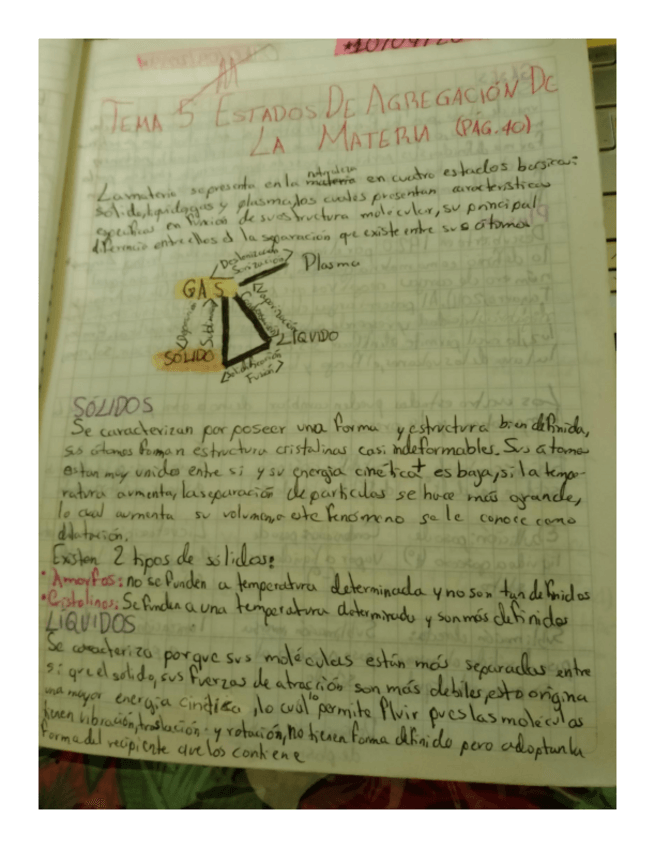 *10/04/20
TEMA 5 ESTADOS DE AGREGACIÓN DE
LA MATERIA (PÁG. 40)
La materia se presenta en la naturaleza materia en cuatro estados basicos:
solido, liquido, gas y plasma, los cuales presentan caracteristicas
especificas en función de su estructura molecular, su principal
diferencia entre ellos d la separación que existe entre sus átomos
Desionización
Ionización
Plasma
GAS
Vaporización
Condensación
LÍQUIDO
SÓLIDO
Solidificación
Fusión
SÓLIDOS
Se caracterizan por poseer una forma y estructura bien definida,
sus átomos forman estructura cristalinas casi indeformables. Sus átomos
estan muy unidos entre si y su energia cinética+ es baja, si la tempe-
ratura aumenta, la separación de particulas se hace más grande,
lo cual aumenta su volumen, a este fenómeno se le conoce como
dilatación.
Existen 2 tipos de sólidos:
• Amorfos: no se funden a temperatura determinada y no son tan definidos
• Cistalinos: Se funden a una temperatura determinada y son más definidos
LÍQUIDOS
Se caracteriza porque sus moléculas están más separadas entre
si que el solido, sus fuerzas de atracción son más debiles, esto origina
una mayor energia cinética, lo cuál lo permite fluir pues las moléculas
tienen vibración, traslación y rotación, no tienen forma definida pero adoptan la
forma del recipiente que los contiene